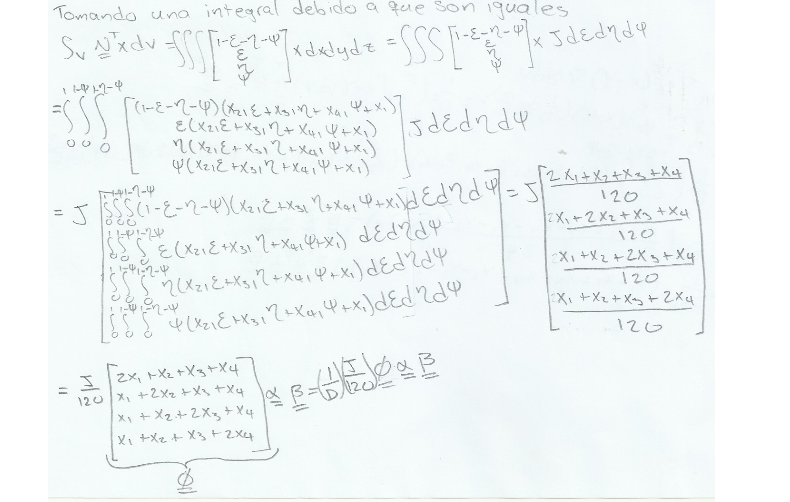 Tomando una integral debido a que son iguales
∫v N^T x dv = ∫∫∫ [1-ε-η-ψ; ε; η; ψ] x dxdydz = ∫∫∫ [1-ε-η-ψ; ε; η; ψ] x J dεdηdψ
= ∫₀¹ ∫₀^(1-ψ) ∫₀^(1-η-ψ) [(1-ε-η-ψ)(x21ε+x31η+x41ψ+x1); ε(x21ε+x31η+x41ψ+x1); η(x21ε+x31η+x41ψ+x1); ψ(x21ε+x31η+x41ψ+x1)] J dεdηdψ
= J [∫₀¹ ∫₀^(1-ψ) ∫₀^(1-η-ψ) (1-ε-η-ψ)(x21ε+x31η+x41ψ+x1)dεdηdψ; ∫₀¹ ∫₀^(1-ψ) ∫₀^(1-η-ψ) ε(x21ε+x31η+x41ψ+x1) dεdηdψ; ∫₀¹ ∫₀^(1-ψ) ∫₀^(1-η-ψ) η(x21ε+x31η+x41ψ+x1)dεdηdψ; ∫₀¹ ∫₀^(1-ψ) ∫₀^(1-η-ψ) ψ(x21ε+x31η+x41ψ+x1)dεdηdψ] = J [(2x1+x2+x3+x4)/120; (x1+2x2+x3+x4)/120; (x1+x2+2x3+x4)/120; (x1+x2+x3+2x4)/120]
= J/120 [2x1+x2+x3+x4; x1+2x2+x3+x4; x1+x2+2x3+x4; x1+x2+x3+2x4] α β = (1/D)(J/120) φ α β
φ